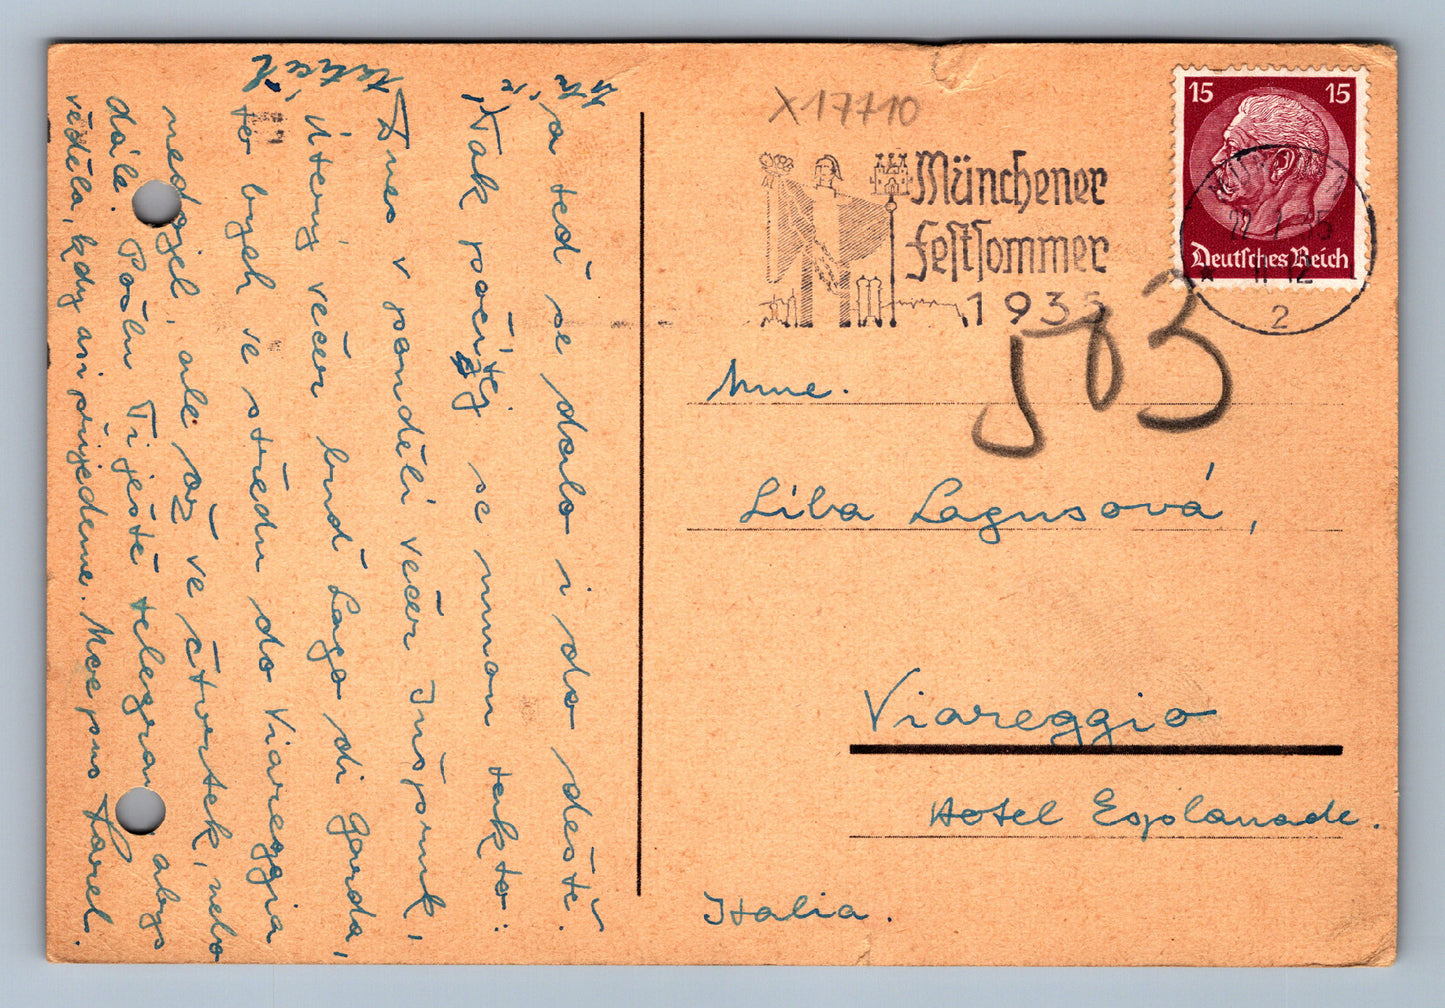 a teď se dalo i do deště.
Tak počítej se mnou takto:
Dnes v pondělí večer Inšpruk,
úterý večer buď Lago di Garda,
to bych se středu do Viareggia
nedojel, ale až ve čtvrtek, nebo
dále. Pošlu Ti ještě telegram abys
věděla, kdy asi přijedeme. Karel.
X17710
Münchener
Festsommer
1935
15 15
Deutsches Reich
22 7 35
11 12
2
583
Mme.
Líba Lagusová,
Viareggio
Hotel Esplanade.
Italia.